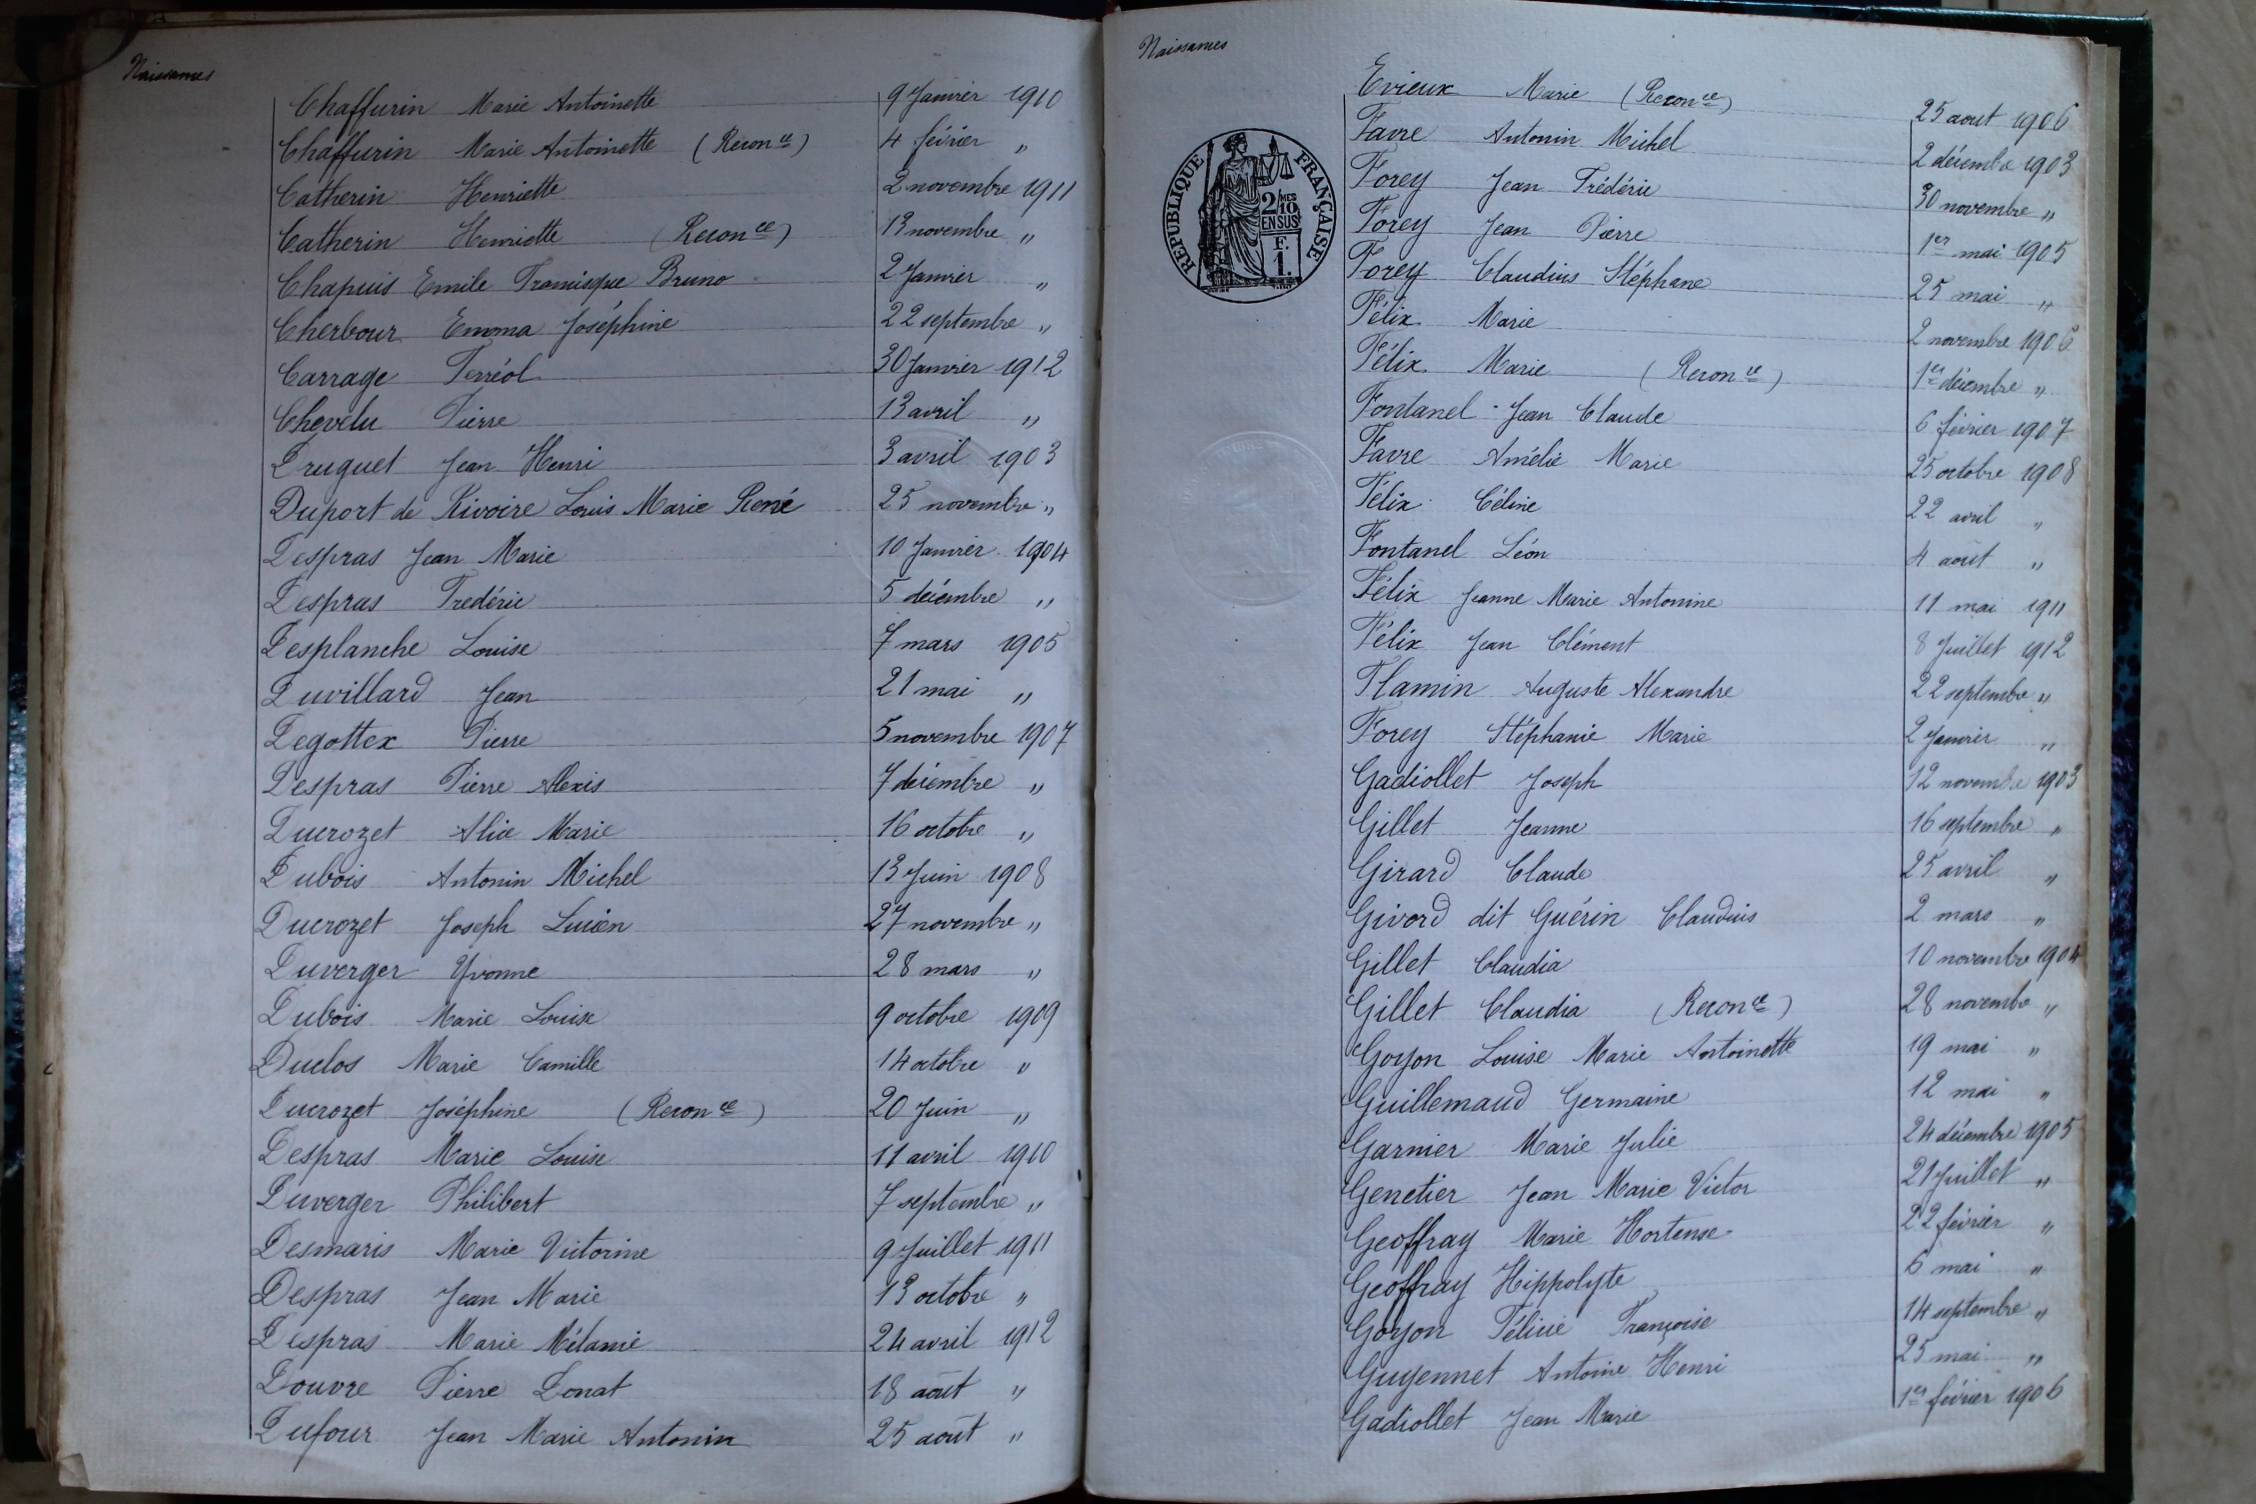 Naissances
Chaffurin Marie Antoinette 9 Janvier 1910
Chaffurin Marie Antoinette (Recon ce) 4 février "
Catherin Henriette 2 novembre 1911
Catherin Henriette (Recon ce) 13 novembre "
Chapuis Emile Francisque Bruno 2 Janvier "
Cherbour Emma Joséphine 22 septembre "
Carrage Ferréol 30 Janvier 1912
Chevelu Pierre 13 avril "
Druguet Jean Henri 3 avril 1903
Duport de Rivoire Louis Marie René 25 novembre "
Despras Jean Marie 10 Janvier 1904
Despras Frédéric 5 décembre "
Desplanche Louise 7 mars 1905
Duvillard Jean 21 mai "
Degottex Pierre 5 novembre 1907
Despras Pierre Alexis 7 décembre "
Ducrozet Alice Marie 16 octobre "
Dubois Antonin Michel 13 Juin 1908
Ducrozet Joseph Lucien 27 novembre "
Duverger Yvonne 28 mars "
Dubois Marie Louise 9 octobre 1909
Duclos Marie Camille 14 octobre "
Ducrozet Joséphine (Recon ce) 20 Juin "
Despras Marie Louise 11 avril 1910
Duverger Philibert 7 septembre "
Desmaris Marie Victorine 9 Juillet 1911
Despras Jean Marie 13 octobre "
Despras Marie Mélanie 24 avril 1912
Douvre Pierre Donat 18 août "
Dufour Jean Marie Antonin 25 août "
Naissances
REPUBLIQUE FRANÇAISE
2/10 MES
EN SUS
F.
1.
Evieux Marie (Recon ce) 25 aout 1906
Favre Antonin Michel 2 décembre 1903
Forey Jean Frédéric 30 novembre "
Forey Jean Pierre 1er mai 1905
Forey Claudius Stéphane 25 mai "
Félix Marie 2 novembre 1906
Félix Marie (Recon ce) 1er décembre "
Fontanel Jean Claude 6 février 1907
Favre Amélie Marie 25 octobre 1908
Félix Céline 22 avril "
Fontanel Léon 4 août "
Félix Jeanne Marie Antonine 11 mai 1911
Félix Jean Clément 8 Juillet 1912
Flamin Auguste Alexandre 22 septembre "
Forey Stéphanie Marie 2 Janvier "
Gadiollet Joseph 12 novembre 1903
Gillet Jeanne 16 septembre "
Girard Claude 25 avril "
Givord dit Guérin Claudius 2 mars "
Gillet Claudia 10 novembre 1904
Gillet Claudia (Recon ce) 28 novembre "
Goyon Louise Marie Antoinette 19 mai "
Guillemaud Germaine 12 mai "
Garnier Marie Julie 24 décembre 1905
Genetier Jean Marie Victor 21 Juillet "
Geoffray Marie Hortense 22 février "
Geoffray Hippolyte 6 mai "
Goyon Félicie Françoise 14 septembre "
Guyennet Antoine Henri 25 mai "
Gadiollet Jean Marie 1er février 1906